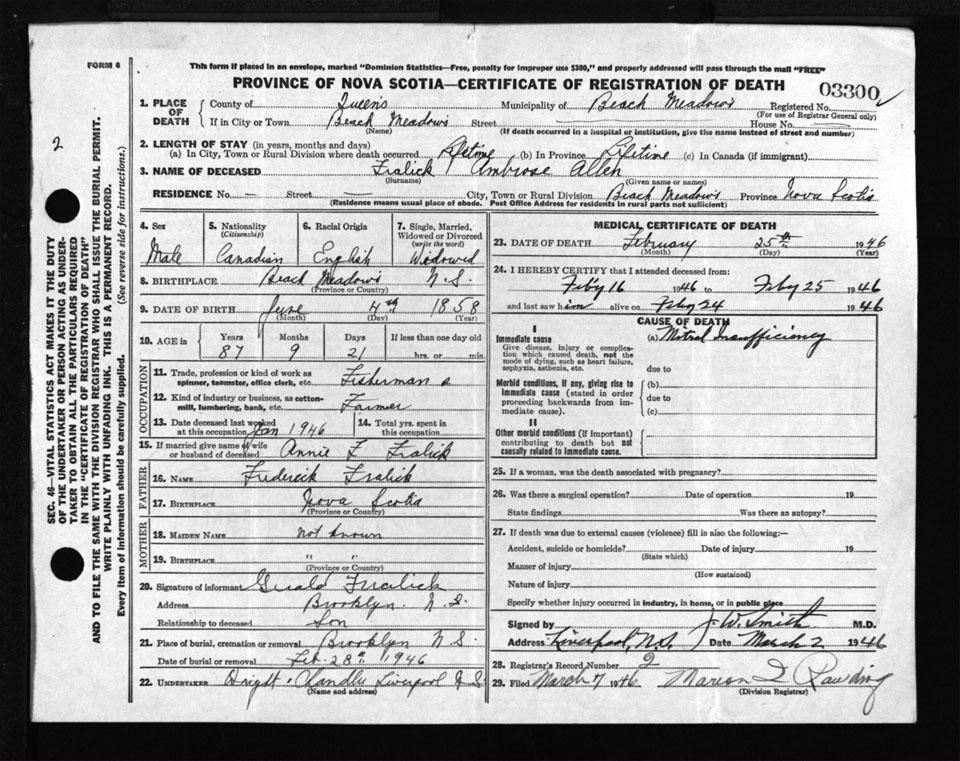 FORM 6
This form if placed in an envelope, marked "Dominion Statistics—Free, penalty for improper use $300," and properly addressed will pass through the mail "FREE"
PROVINCE OF NOVA SCOTIA—CERTIFICATE OF REGISTRATION OF DEATH
03300
2
SEC. 46—VITAL STATISTICS ACT MAKES IT THE DUTY
OF THE UNDERTAKER OR PERSON ACTING AS UNDER-
TAKER TO OBTAIN ALL THE PARTICULARS REQUIRED
IN THE "CERTIFICATE OF REGISTRATION OF DEATH"
AND TO FILE THE SAME WITH THE DIVISION REGISTRAR WHO SHALL ISSUE THE BURIAL PERMIT.
WRITE PLAINLY WITH UNFADING INK. THIS IS A PERMANENT RECORD.
Every item of information should be carefully supplied. (See reverse side for instructions.)
1. PLACE OF DEATH
County of Queens Municipality of Beach Meadows Registered No.
(For use of Registrar General only)
If in City or Town Beach Meadows Street House No.
(Name) (If death occurred in a hospital or institution, give the name instead of street and number)
2. LENGTH OF STAY (in years, months and days)
(a) In City, Town or Rural Division where death occurred Lifetime (b) In Province Lifetime (c) In Canada (if immigrant)
3. NAME OF DECEASED Fralick Ambrose Allen
(Surname) (Given name or names)
RESIDENCE No. — Street — City, Town or Rural Division Beach Meadows Province Nova Scotia
(Residence means usual place of abode. Post Office Address for residents in rural parts not sufficient)
4. Sex Male
5. Nationality (Citizenship) Canadian
6. Racial Origin English
7. Single, Married, Widowed or Divorced (write the word) Widowed
8. BIRTHPLACE Beach Meadows N.S.
(Province or Country)
9. DATE OF BIRTH June 4th 1858
(Month) (Day) (Year)
10. AGE in Years Months Days If less than one day old
87 9 21 hrs. or min.
OCCUPATION
11. Trade, profession or kind of work as spinner, teamster, office clerk, etc. Fisherman &
12. Kind of industry or business, as cotton-mill, lumbering, bank, etc. Farmer
13. Date deceased last worked at this occupation Jan 1946
14. Total yrs. spent in this occupation
15. If married give name of wife or husband of deceased Annie E Fralick
FATHER
16. NAME Frederick Fralick
17. BIRTHPLACE Nova Scotia
(Province or Country)
MOTHER
18. MAIDEN NAME not known
19. BIRTHPLACE " "
(Province or Country)
20. Signature of informant Gerald Fralick
Address Brooklyn. N.S.
Relationship to deceased Son
21. Place of burial, cremation or removal Brooklyn N.S.
Date of burial or removal Feb. 28th 1946
22. UNDERTAKER Chandler Liverpool N.S.
(Name and address)
MEDICAL CERTIFICATE OF DEATH
23. DATE OF DEATH February 25th 1946
(Month) (Day) (Year)
24. I HEREBY CERTIFY that I attended deceased from:
Feby 16 1946 to Feby 25 1946
and last saw him alive on Feby 24 1946
CAUSE OF DEATH
I
Immediate cause
Give disease, injury or complication which caused death, not the mode of dying, such as heart failure, asphyxia, asthenia, etc.
(a) Mitral Insufficiency
due to
Morbid conditions, if any, giving rise to immediate cause (stated in order proceeding backwards from immediate cause).
(b)
due to
(c)
II
Other morbid conditions (if important) contributing to death but not causally related to immediate cause.
25. If a woman, was the death associated with pregnancy?
26. Was there a surgical operation? Date of operation 19
State findings Was there an autopsy?
27. If death was due to external causes (violence) fill in also the following:—
Accident, suicide or homicide? Date of injury 19
(State which)
Manner of injury
(How sustained)
Nature of injury
Specify whether injury occurred in industry, in home, or in public place
Signed by J. W. Smith M.D.
Address Liverpool, N.S. Date March 2 1946
28. Registrar's Record Number 2
29. Filed March 7 1946 Marion
(Division Registrar)